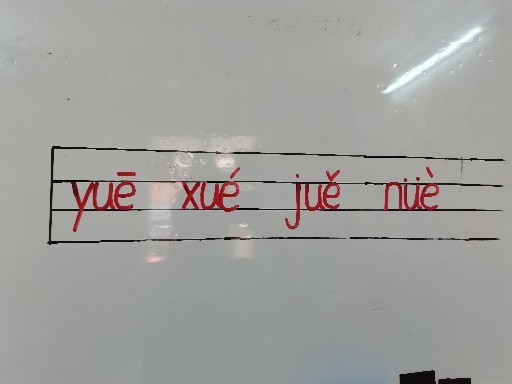 yuē xué juě nüè